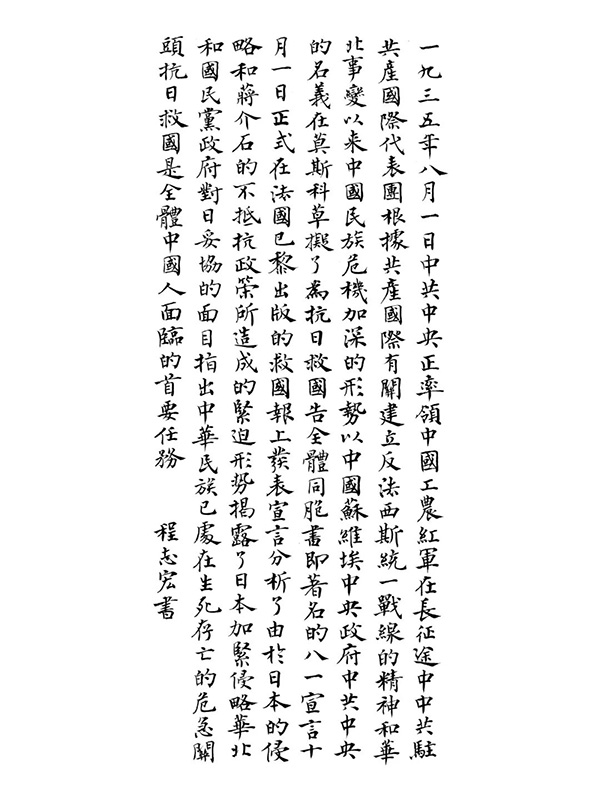 一九三五年八月一日中共中央正率領中國工農紅軍在長征途中中共駐
共產國際代表團根據共產國際有關建立反法西斯統一戰線的精神和華
北事變以来中國民族危機加深的形勢以中國蘇維埃中央政府中共中央
的名義在莫斯科草擬了為抗日救國告全體同胞書即著名的八一宣言十
月一日正式在法國巴黎出版的救國報上發表宣言分析了由於日本的侵
略和蔣介石的不抵抗政策所造成的緊迫形势揭露了日本加緊侵略華北
和國民黨政府對日妥協的面目指出中華民族已處在生死存亡的危急關
頭抗日救國是全體中國人面臨的首要任務 程志宏書